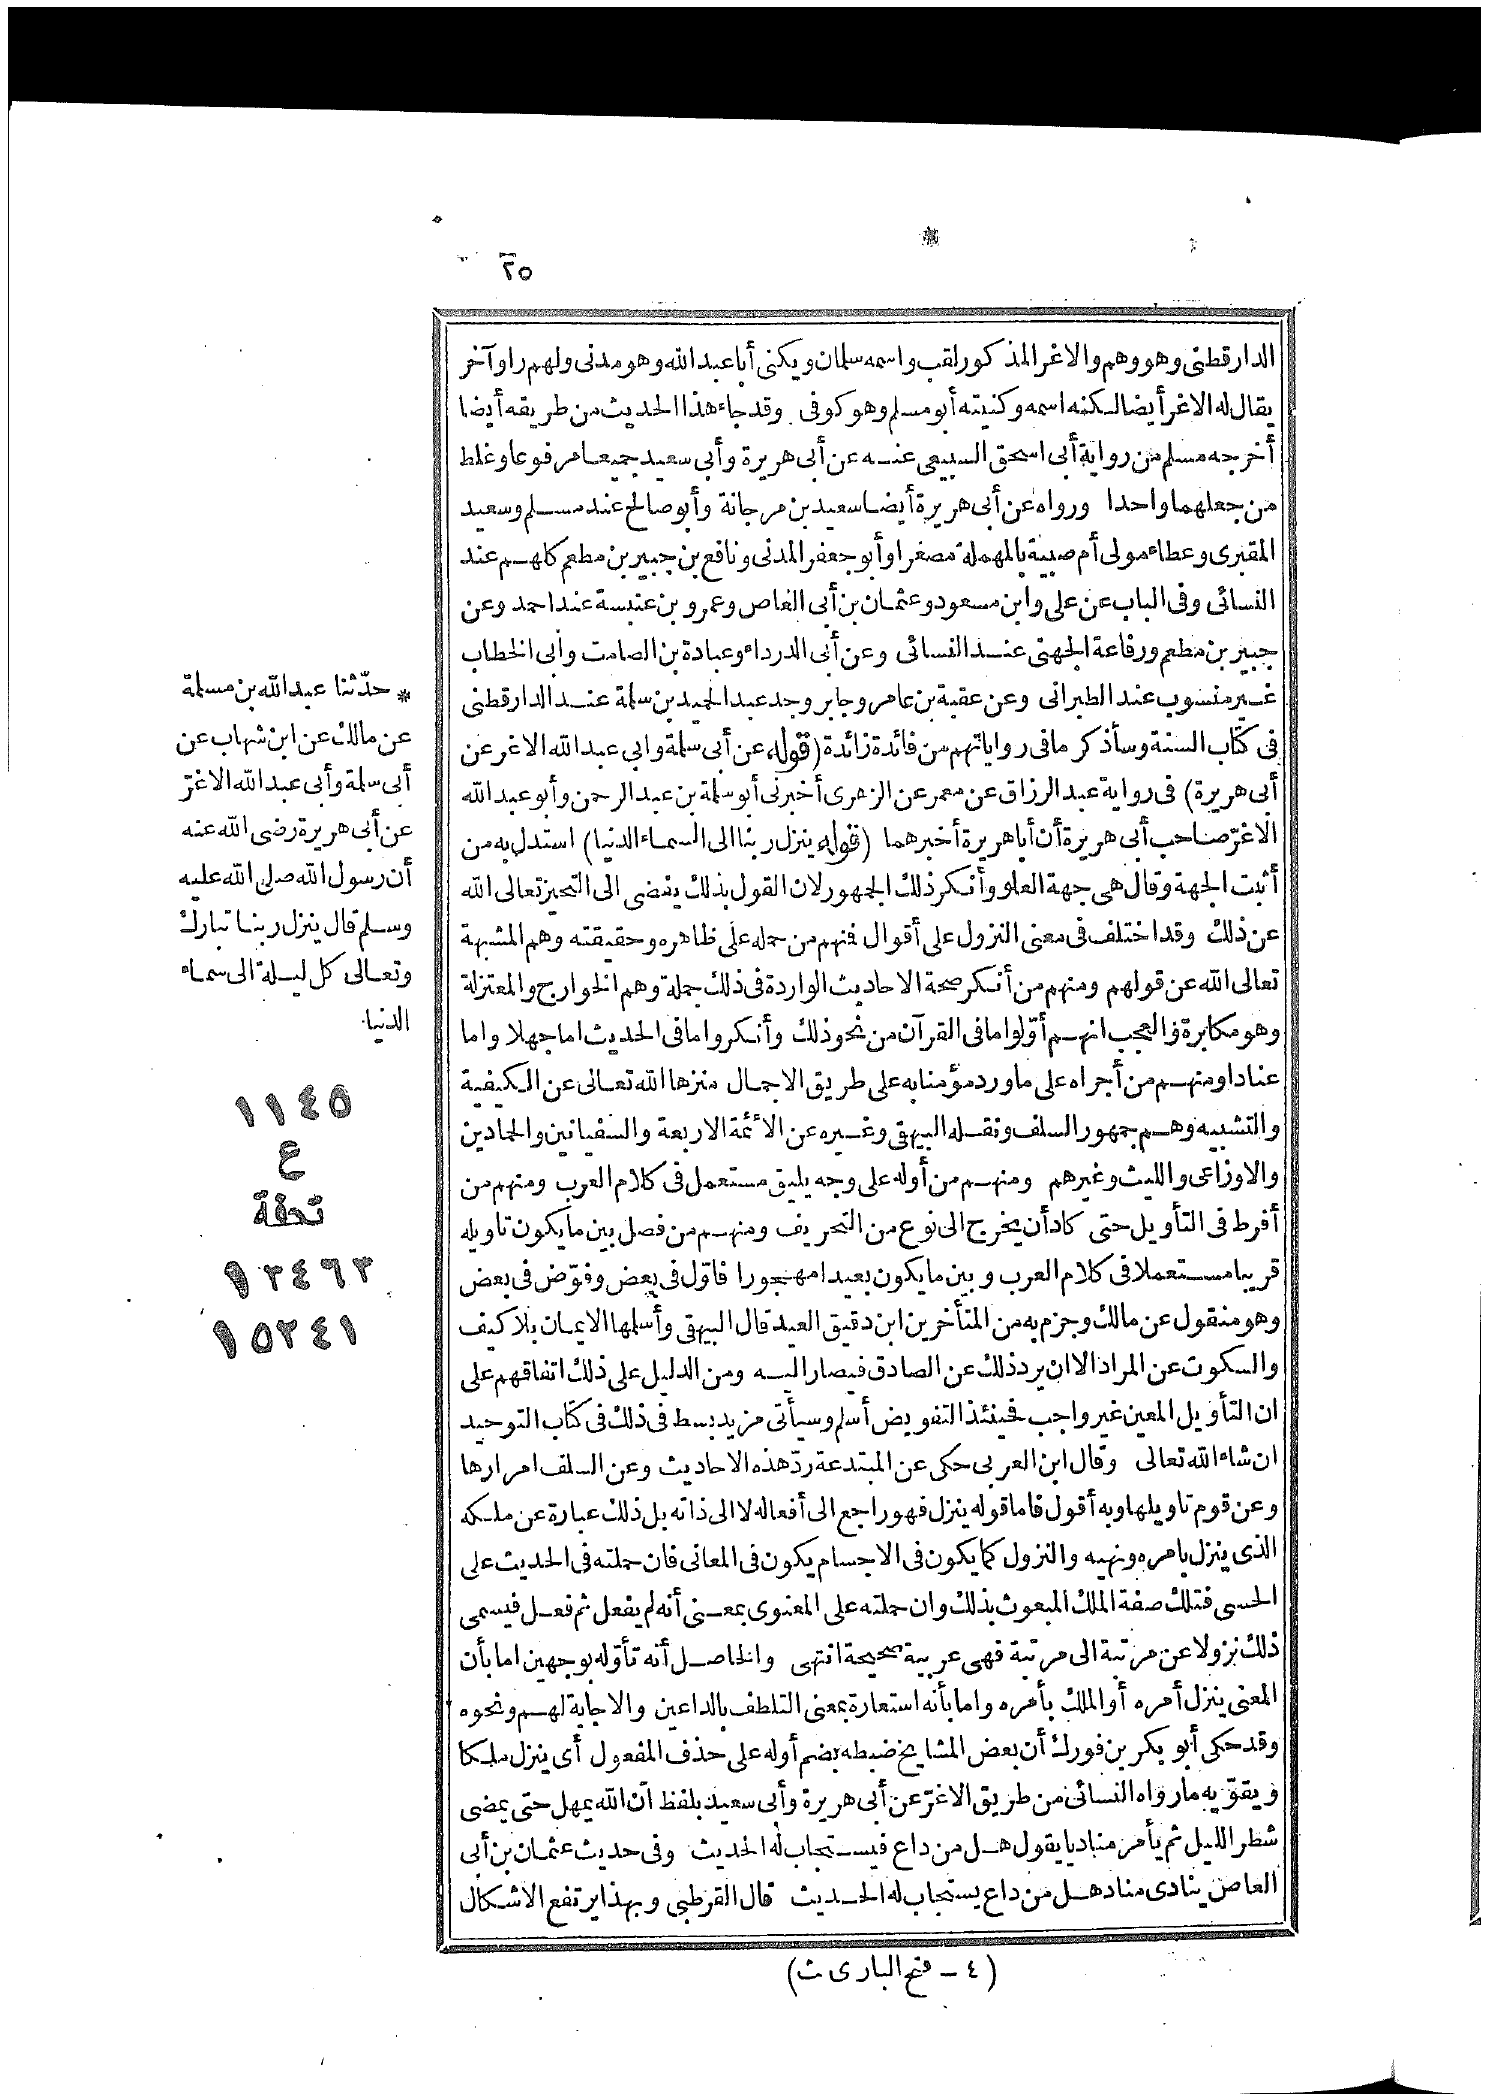 ٢٥
الدارقطنى وهو وهم والاغر المذكور لقب واسمه سلمان ويكنى أبا عبد الله وهو مدنى ولهم راو آخر
يقال له الاغر أيضا لكنه اسمه وكنيته أبو مسلم وهو كوفى وقد جاء هذا الحديث من طريقه أيضا
أخرجه مسلم من رواية أبى اسحق السبيعى عنه عن أبى هريرة وأبى سعيد جميعا مرفوعا وغلط
من جعلهما واحدا ورواه عن أبى هريرة أيضا سعيد بن مرجانة وأبو صالح عند مسلم وسعيد
المقبرى وعطاء مولى أم صبية بالمهملة مصغرا وأبو جعفر المدنى ونافع بن جبير بن مطعم كلهم عند
النسائى وفى الباب عن على وابن مسعود وعثمان بن أبى العاص وعمرو بن عنبسة عند احمد وعن
جبير بن مطعم ورفاعة الجهنى عند النسائى وعن أبى الدرداء وعبادة بن الصامت وأبى الخطاب
غير منسوب عند الطبرانى وعن عقبة بن عامر وجابر وجد عبد الحميد بن سلمة عند الدارقطنى
فى كتاب السنة وسأذكر ما فى رواياتهم من فائدة زائدة (قوله عن أبى سلمة وابى عبد الله الاغر عن
أبى هريرة) فى رواية عبد الرزاق عن معمر عن الزهرى أخبرنى أبو سلمة بن عبد الرحمن وأبو عبد الله
الاغرّ صاحب أبى هريرة أن أبا هريرة أخبرهما (قوله ينزل ربنا الى السماء الدنيا) استدل به من
أثبت الجهة وقال هى جهة العلو وأنكر ذلك الجمهور لان القول بذلك يفضى الى التحيز تعالى الله
عن ذلك وقد اختلف فى معنى النزول على أقوال فمنهم من حمله على ظاهره وحقيقته وهم المشبهة
تعالى الله عن قولهم ومنهم من أنكر صحة الاحاديث الواردة فى ذلك جملة وهم الخوارج والمعتزلة
وهو مكابرة والعجب انهم أوّلوا ما فى القرآن من نحو ذلك وأنكروا ما فى الحديث اما جهلا واما
عنادا ومنهم من أجراه على ما ورد مؤمنا به على طريق الاجمال منزها الله تعالى عن الكيفية
والتشبيه وهم جمهور السلف ونقله البيهقى وغيره عن الائمة الاربعة والسفيانين والحمادين
والاوزاعى والليث وغيرهم ومنهم من أوله على وجه يليق مستعمل فى كلام العرب ومنهم من
أفرط فى التأويل حتى كاد أن يخرج الى نوع من التحريف ومنهم من فصل بين ما يكون تاويله
قريبا مستعملا فى كلام العرب وبين ما يكون بعيدا مهجورا فاوّل فى بعض وفوّض فى بعض
وهو منقول عن مالك وجزم به من المتأخرين ابن دقيق العيد قال البيهقى وأسلمها الايمان بلا كيف
والسكوت عن المراد الا ان يرد ذلك عن الصادق فيصار اليه ومن الدليل على ذلك اتفاقهم على
ان التأويل المعين غير واجب فحينئذ التفويض أسلم وسيأتى مزيد بسط فى ذلك فى كتاب التوحيد
ان شاء الله تعالى وقال ابن العربى حكى عن المبتدعة ردّ هذه الاحاديث وعن السلف امرارها
وعن قوم تاويلها وبه أقول فاما قوله ينزل فهو راجع الى أفعاله لا الى ذاته بل ذلك عبارة عن ملكه
الذى ينزل بامره ونهيه والنزول كما يكون فى الاجسام يكون فى المعانى فان حملته فى الحديث على
الحسى فتلك صفة الملك المبعوث بذلك وان حملته على المعنوى بمعنى أنه لم يفعل ثم فعل فيسمى
ذلك نزولا عن مرتبة الى مرتبة فهى عربية صحيحة انتهى والحاصل أنه تأوّله بوجهين اما بأن
المعنى ينزل أمره أو الملك بأمره واما بأنه استعارة بمعنى التلطف بالداعين والاجابة لهم ونحوه
وقد حكى أبو بكر بن فورك أن بعض المشايخ ضبطه بضم أوله على حذف المفعول أى ينزل ملكا
ويقوّيه ما رواه النسائى من طريق الاغرّ عن أبى هريرة وأبى سعيد بلفظ انّ الله يمهل حتى يمضى
شطر الليل ثم يأمر مناديا يقول هل من داع فيستجاب له الحديث وفى حديث عثمان بن أبى
العاص ينادى مناد هل من داع يستجاب له الحديث قال القرطبى وبهذا يرتفع الاشكال
(٤ - فتح البارى ث)
* حدّثنا عبد الله بن مسلمة
عن مالك عن ابن شهاب عن
أبى سلمة وأبى عبد الله الاغرّ
عن أبى هريرة رضى الله عنه
أن رسول الله صلى الله عليه
وسلم قال ينزل ربنا تبارك
وتعالى كل ليلة الى سماء
الدنيا
١١٤٥
ع
تحفة
١٣٤٦٣
١٥٢٤١